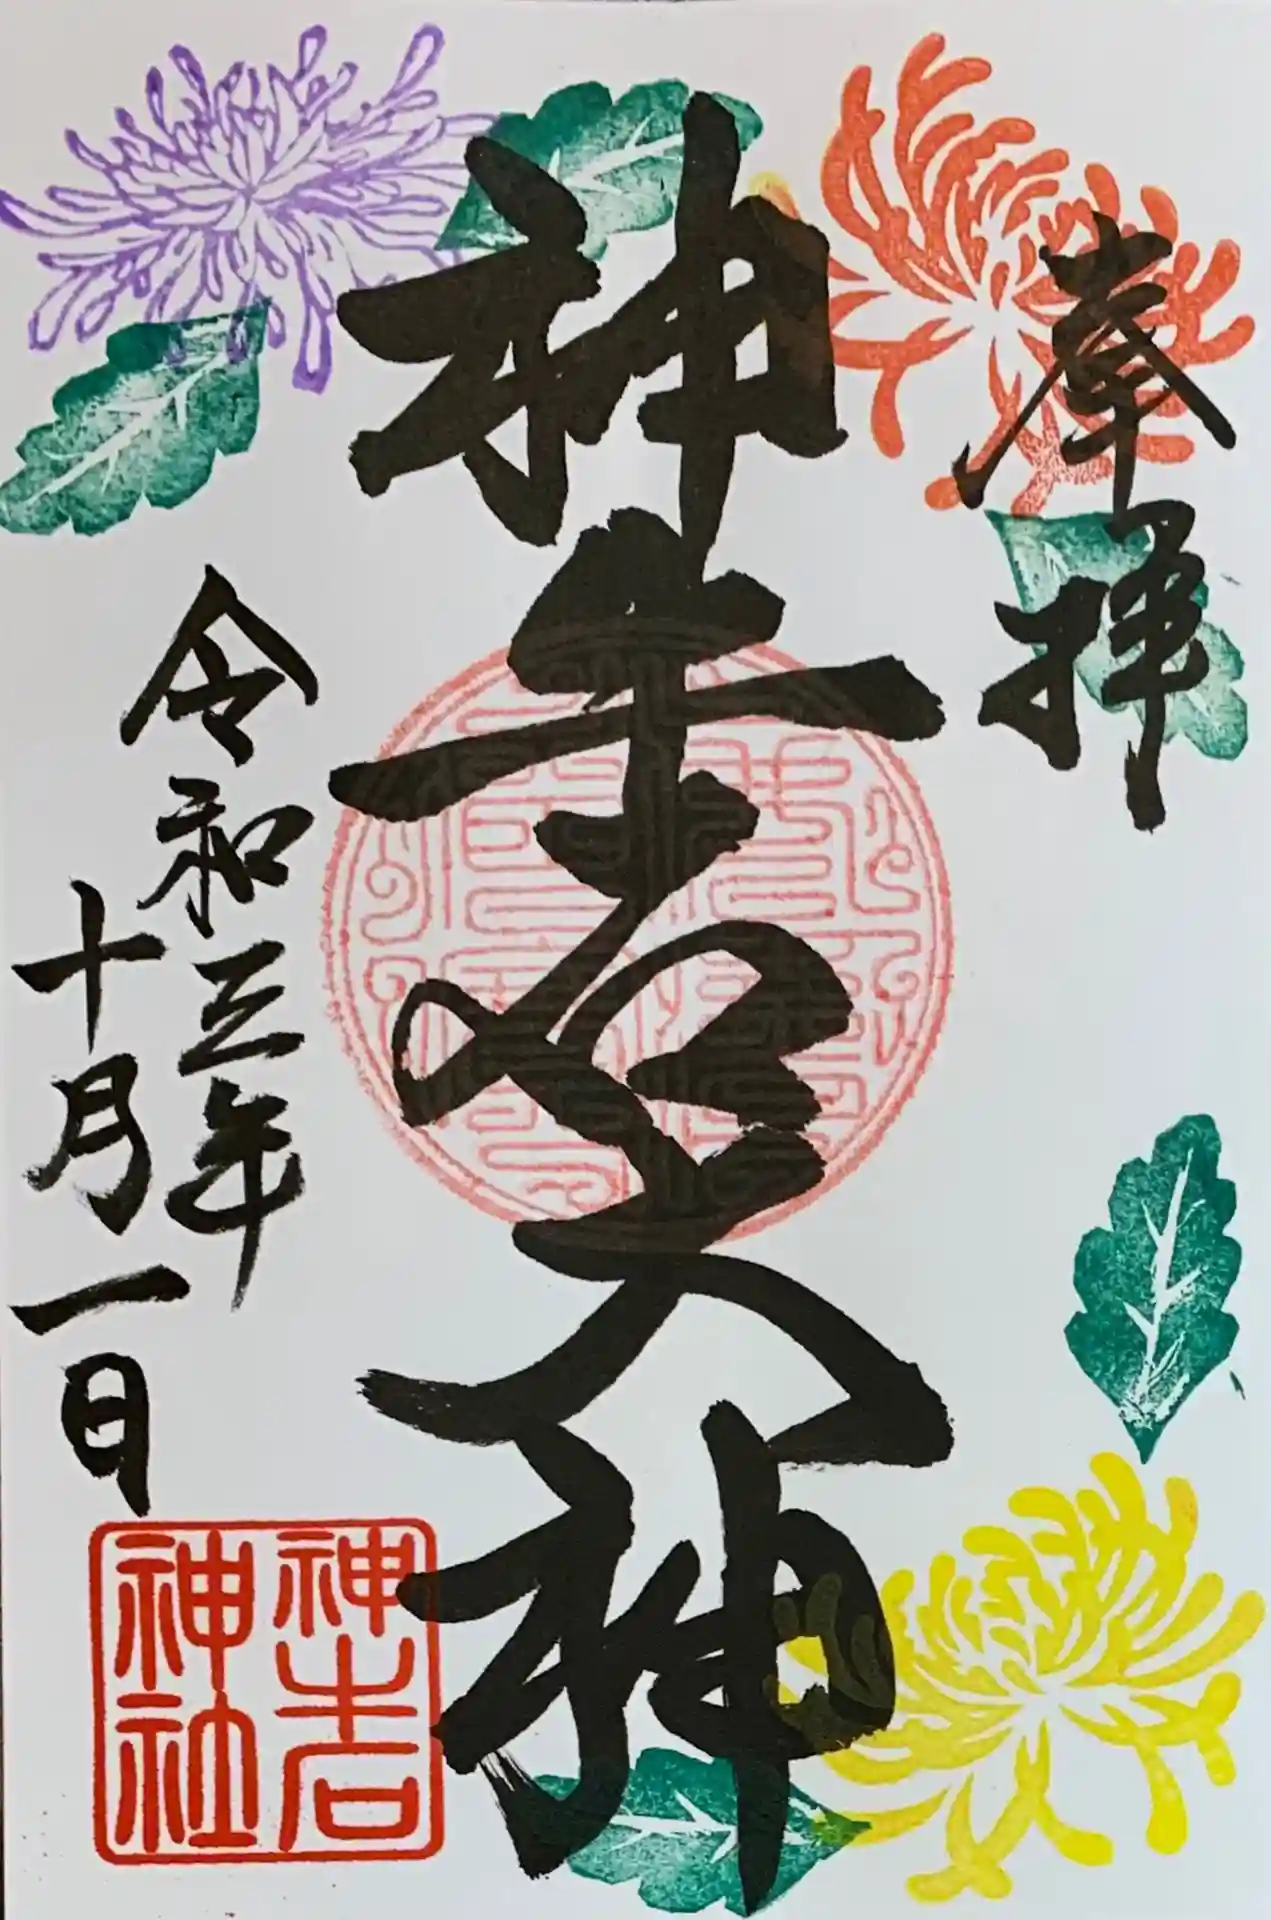 奉拝
神牛石大神
令和三年
十月一日
神牛石
神社